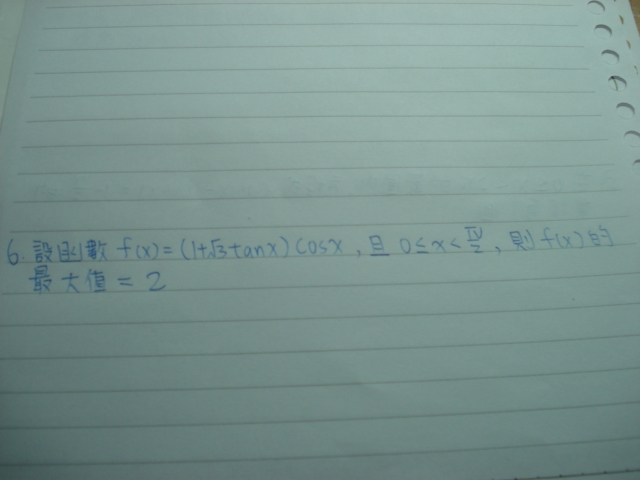 6. 設函數 f(x)=(1+√3tanx)cosx，且 0≤x<π/2，則f(x)的
最大值=2